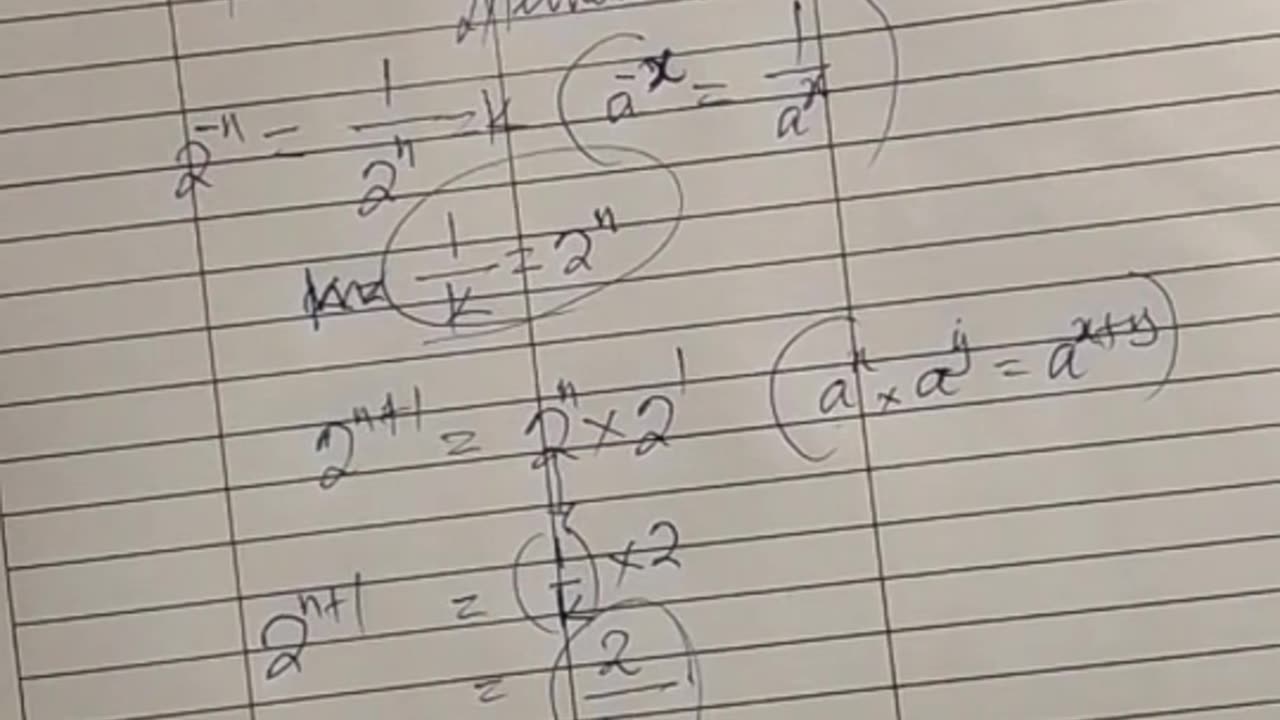 2^{-n} = \frac{1}{2^n} = k (a^{-x} = \frac{1}{a^x})
\frac{1}{k} = 2^n
2^{n+1} = 2^n × 2^1 (a^x × a^y = a^{x+y})
2^{n+1} = \frac{1}{k} × 2
= 2